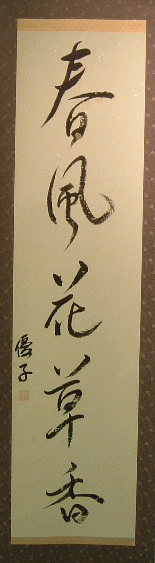 春風花草香
優子